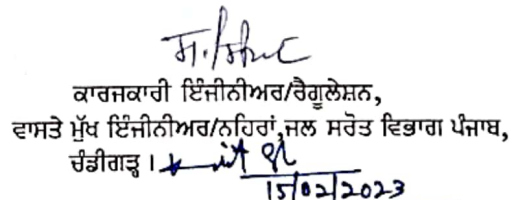 ਕਾਰਜਕਾਰੀ ਇੰਜੀਨੀਅਰ/ਰੈਗੂਲੇਸ਼ਨ,
ਵਾਸਤੇ ਮੁੱਖ ਇੰਜੀਨੀਅਰ/ਨਹਿਰਾਂ,ਜਲ ਸਰੋਤ ਵਿਭਾਗ ਪੰਜਾਬ,
ਚੰਡੀਗੜ੍ਹ ।
15/02/2023